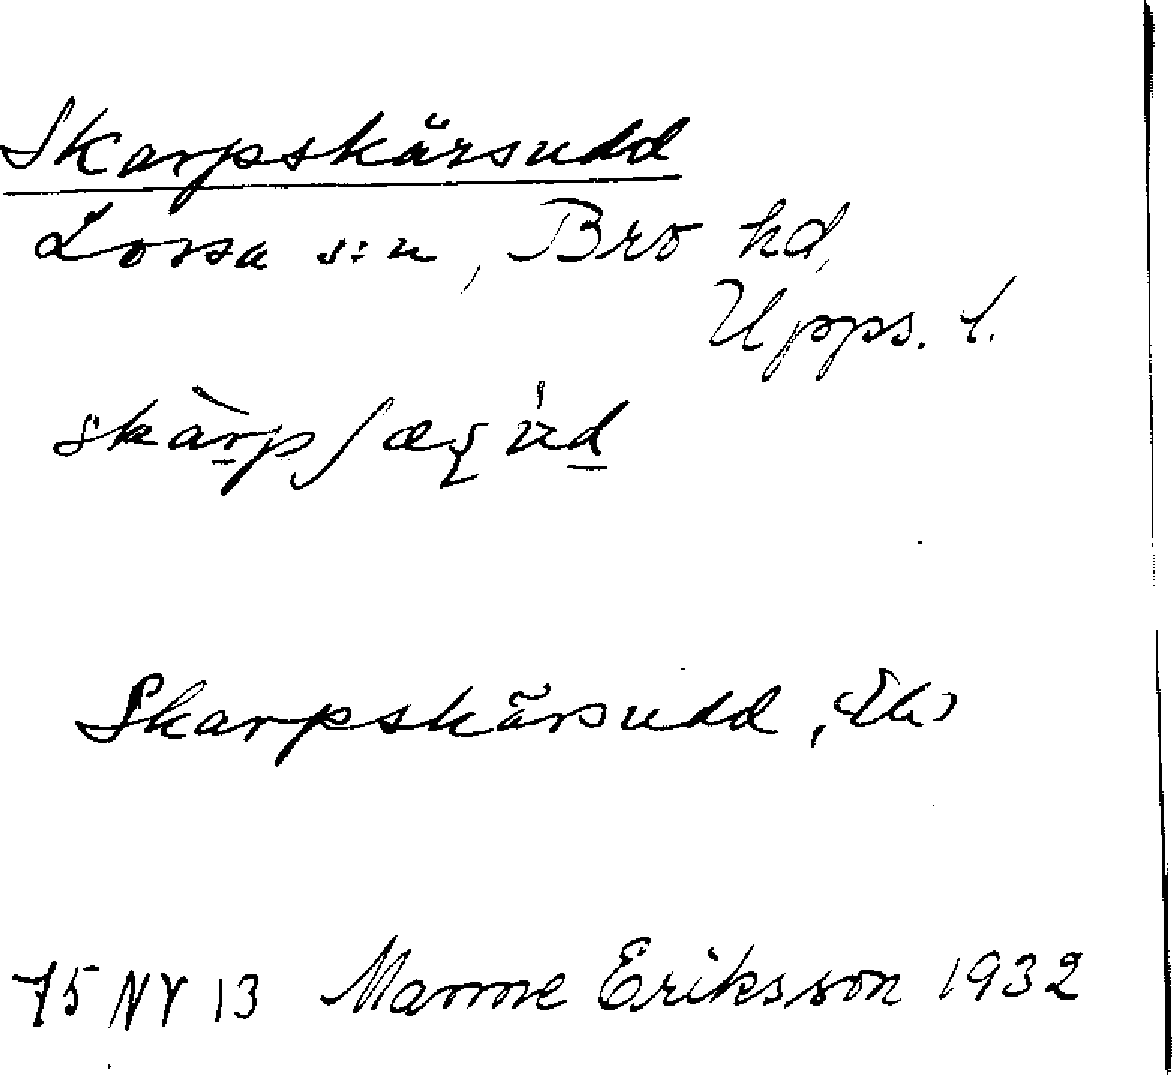 Skarpskärsudd
Lossa s:n, Bro hd,
Upps. l.
Skarpskärsudd,
75 NY 13 Manne Eriksson 1932